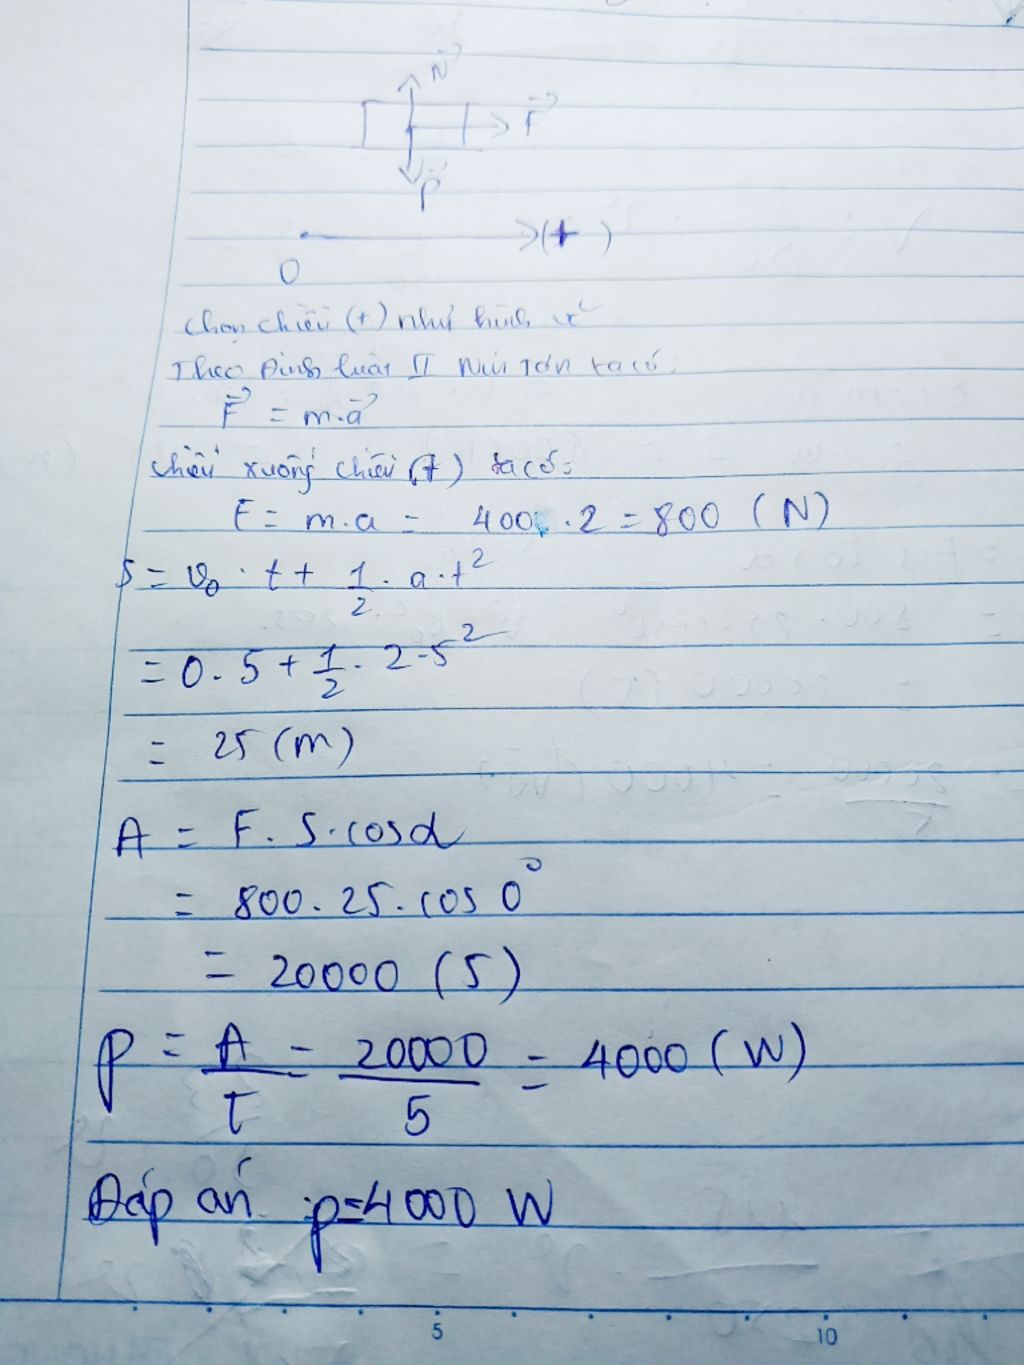 N
F
P
(+)
O
Chọn chiều (+) như hình vẽ
Theo Định luật II Niu Tơn ta có:
F = m.a
chiếu xuống chiều (+) ta có:
F = m.a = 400 .2 = 800 (N)
S = v₀ . t + 1/2 . a.t²
= 0.5 + 1/2 . 2.5²
= 25 (m)
A = F. S.cosα
= 800. 25. cos 0°
= 20000 (J)
P = A/t = 20000/5 = 4000 (W)
Đáp án p=4000 W
5 10